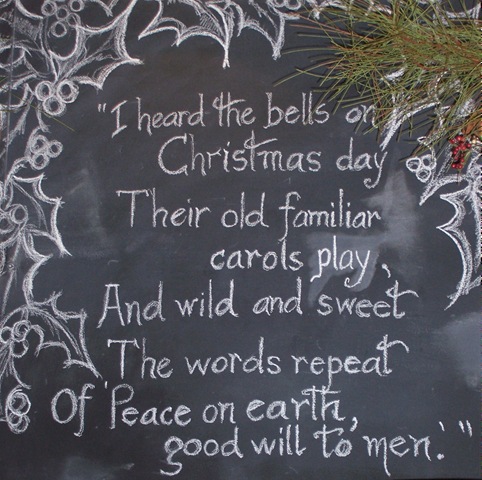 "I heard the bells on
Christmas day
Their old familiar
carols play,
And wild and sweet
The words repeat
Of 'Peace on earth,
good will to men.'"